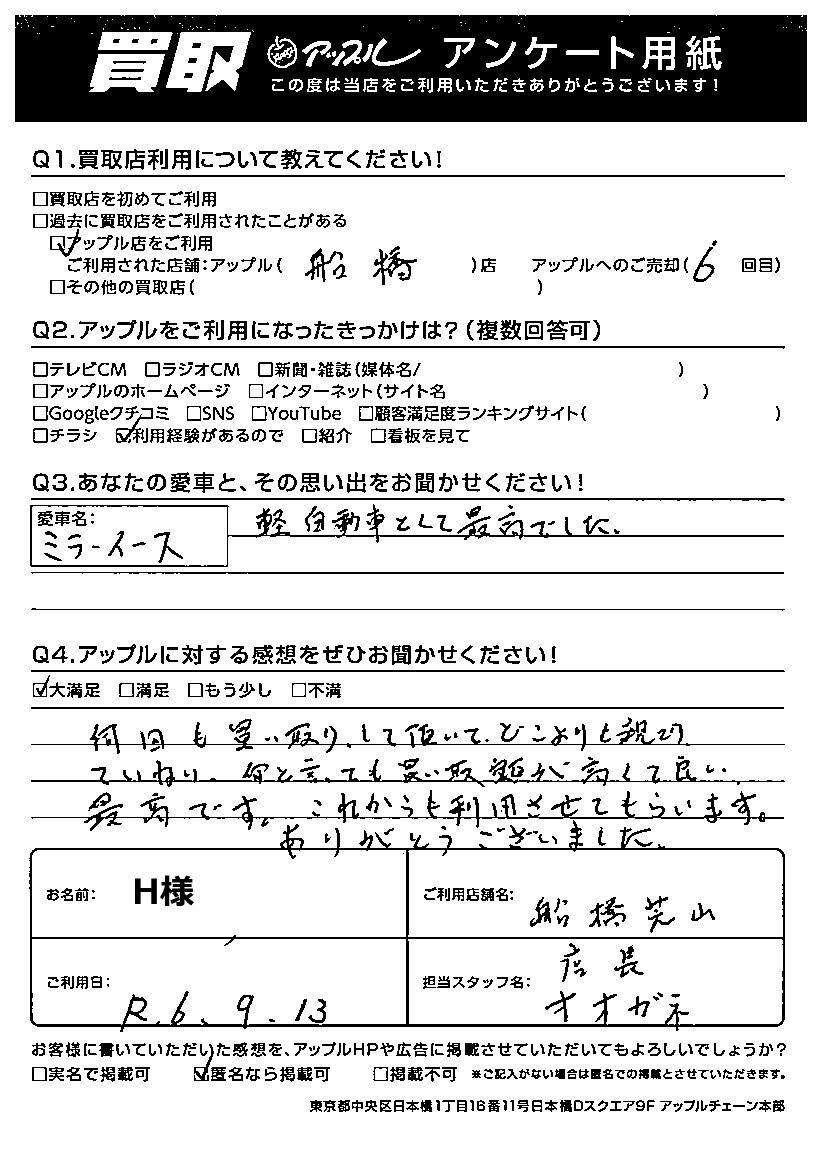 買取 アップル アンケート用紙
この度は当店をご利用いただきありがとうございます!
Q1.買取店利用について教えてください!
□買取店を初めてご利用
□過去に買取店をご利用されたことがある
☑アップル店をご利用
ご利用された店舗:アップル( 船橋 )店 アップルへのご売却( 6 回目)
□その他の買取店( )
Q2.アップルをご利用になったきっかけは?(複数回答可)
□テレビCM □ラジオCM □新聞・雑誌(媒体名/ )
□アップルのホームページ □インターネット(サイト名 )
□Googleクチコミ □SNS □YouTube □顧客満足度ランキングサイト( )
□チラシ ☑利用経験があるので □紹介 □看板を見て
Q3.あなたの愛車と、その思い出をお聞かせください!
愛車名:
ミラーイース 軽自動車として最高でした。
Q4.アップルに対する感想をぜひお聞かせください!
☑大満足 □満足 □もう少し □不満
何回も買い取りして頂いて、どこよりも親切
ていねい。何と言っても買い取額が高くて良い。
最高です。これからも利用させてもらいます。
ありがとうございました。
お名前: H様 ご利用店舗名: 船橋芝山
ご利用日: R.6.9.13 担当スタッフ名: 店長
オオガネ
お客様に書いていただいた感想を、アップルHPや広告に掲載させていただいてもよろしいでしょうか?
□実名で掲載可 ☑匿名なら掲載可 □掲載不可 ※ご記入がない場合は匿名での掲載とさせていただきます。
東京都中央区日本橋1丁目16番11号日本橋Dスクエア9F アップルチェーン本部